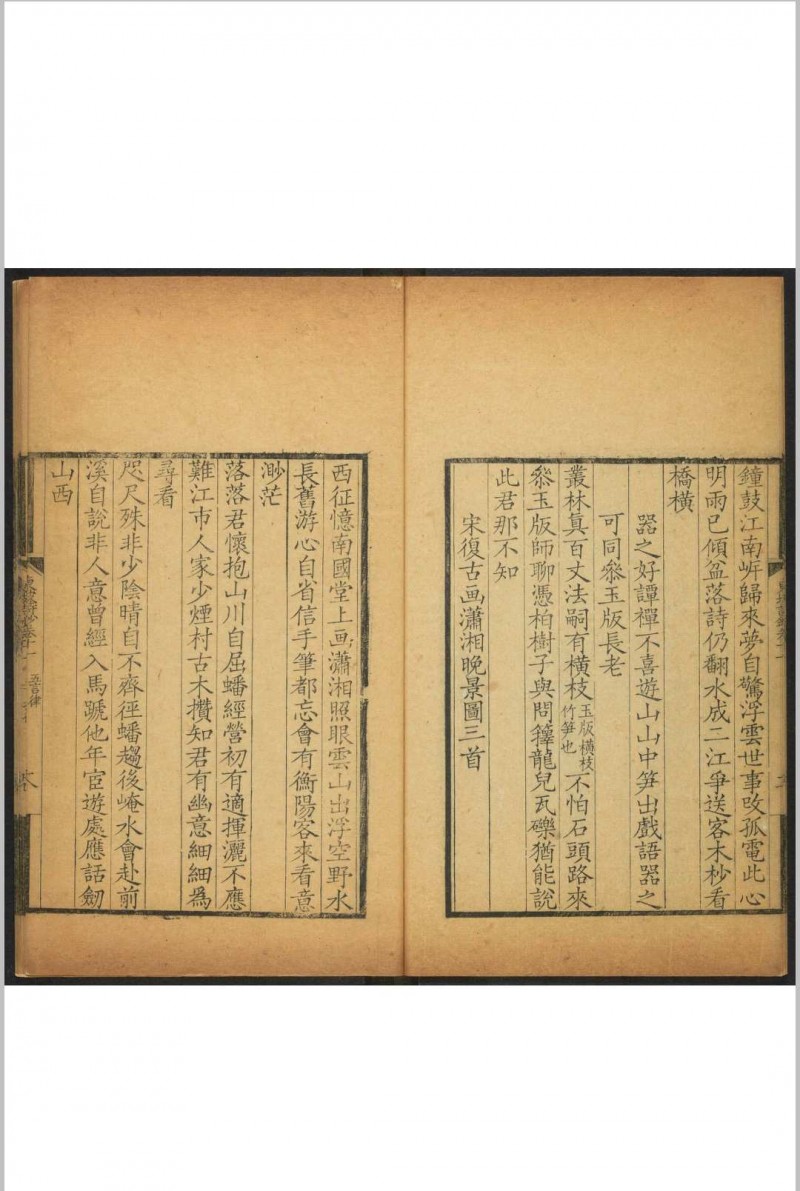 鐘鼓江南岸歸來夢自驚浮雲世事改孤電此心
明雨已傾盆落詩仍翻水成二江爭送客木杪看
橋橫
器之好譚禪不喜遊山山中笋出戲語器之
可同叅玉版長老
叢林真百丈法嗣有橫枝玉版橫枝竹笋也不怕石頭路來
叅玉版師聊憑柏樹子與問籜龍兒瓦礫猶能說
此君那不知
宋復古画瀟湘晚景圖三首
西征憶南國堂上画瀟湘照眼雲山出浮空野水
長舊游心自省信手筆都忘會有衡陽客來看意
渺茫
落落君懷抱山川自屈蟠經營初有適揮灑不應
難江市人家少煙村古木攢知君有幽意細細為
尋看
咫尺殊非少陰晴自不齊徑蟠趨後崦水會赴前
溪自說非人意曾經入馬蹏他年宦遊處應話劒
山西
五言律